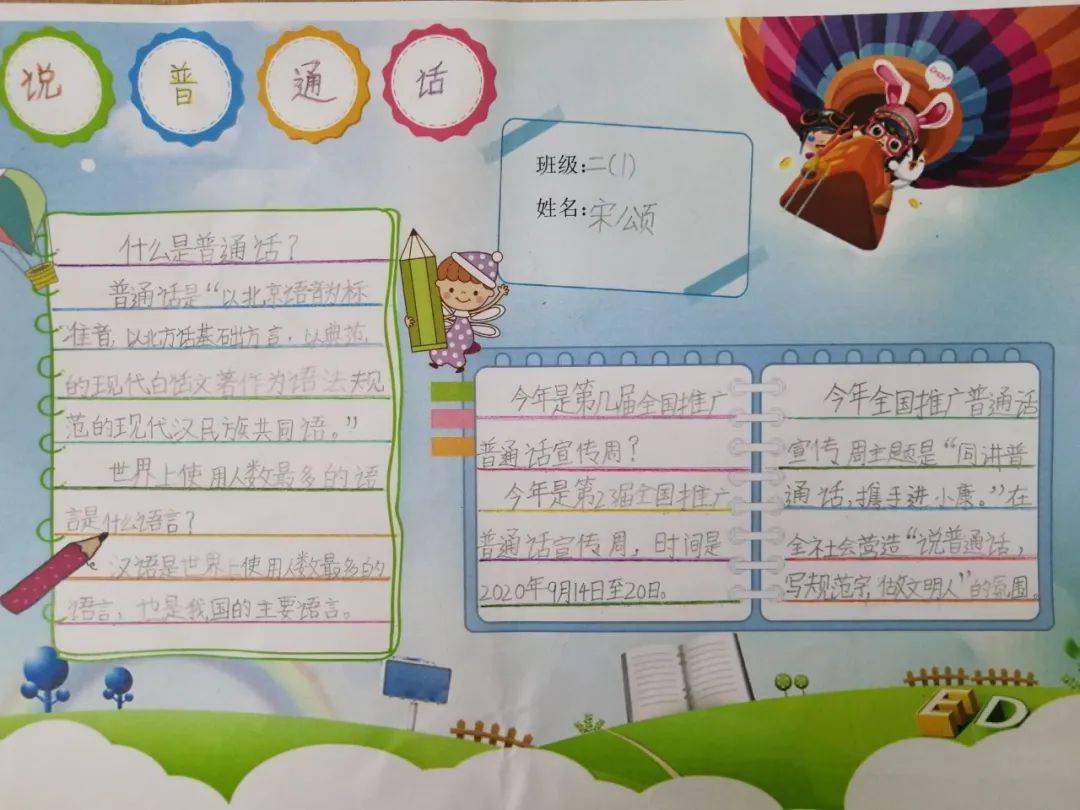 说普通话
班级:二(1)
姓名:宋颂
什么是普通话?
普通话是“以北京语音为标
准音,以北方话基础方言,以典范
的现代白话文著作为语法规
范的现代汉民族共同语。”
世界上使用人数最多的语
言是什么语言?
汉语是世界上使用人数最多的
语言,也是我国的主要语言。
今年是第几届全国推广
普通话宣传周?
今年是第23届全国推广
普通话宣传周,时间是
2020年9月14日至20日。
今年全国推广普通话
宣传周主题是“同讲普
通话,携手进小康。”在
全社会营造“说普通话,
写规范字,做文明人”的氛围。
ED